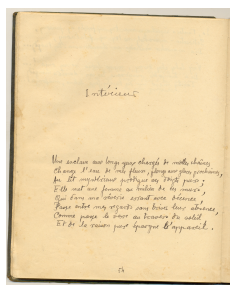 Intérieur
Une esclave aux longs yeux chargés de molles chaînes
Change l'eau de mes fleurs, plonge aux glaces prochaines,
Au lit mystérieux prodigue ses doigts purs;
Elle met une femme au milieu de ces murs,
Qui dans ma rêverie errant avec décence,
Passe entre mes regards sans briser leur absence,
Comme passe le verre au travers du soleil
Et de la raison pure épargne l'appareil.